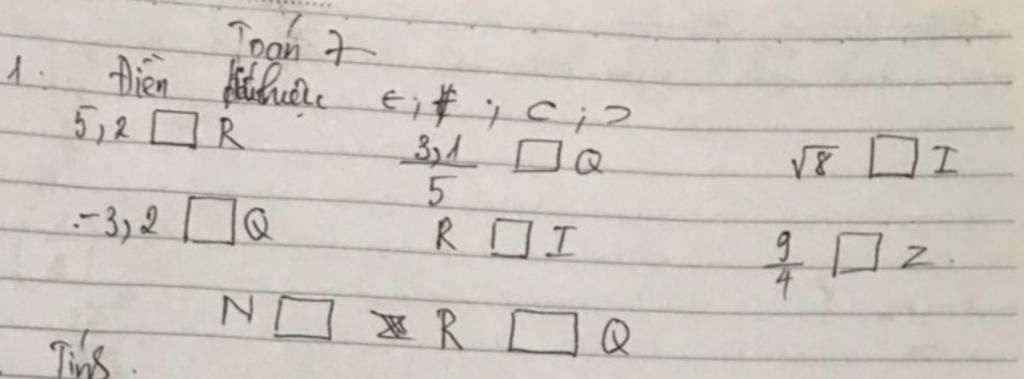 Toán 7
1. Điền ∈; ∉; ⊂; ⊃
5,2 □ R 3,1/5 □ Q √8 □ I
-3,2 □ Q R □ I 9/4 □ Z.
N □ R □ Q
Tính.